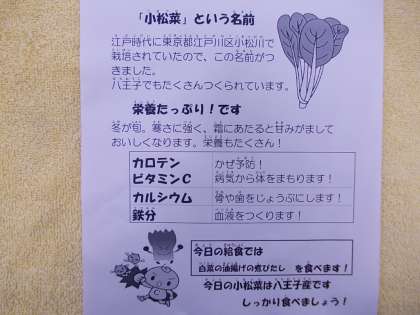 「小松菜」という名前
江戸時代に東京都江戸川区小松川で
栽培されていたので、この名前がつ
きました。
八王子でもたくさんつくられています。
栄養たっぷり！です
冬が旬。寒さに強く、霜にあたると甘みがまして
おいしくなります。栄養もたくさん！
カロテン かぜ予防！
ビタミンC 病気から体をまもります！
カルシウム 骨や歯をじょうぶにします！
鉄分 血液をつくります！
今日の給食では
白菜の油揚げの煮びたし を食べます！
今日の小松菜は八王子産です
しっかり食べましょう！